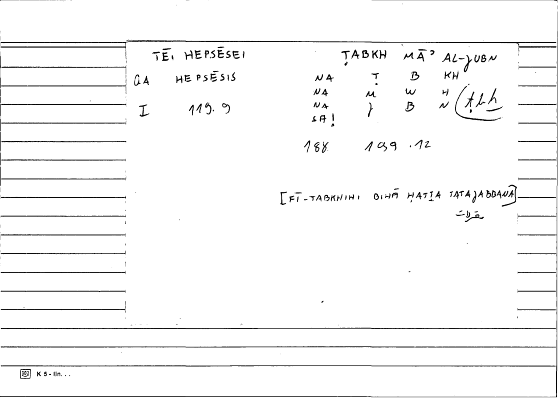 TĒI HEPSĒSEI ṬABKH MĀʾ AL-JUBN
GA HEPSĒSIS NA Ṭ B KH
NA M W H
I 119.9 NA J B N
SA!
188 199.12
[FĪ-TABKHIHI BIHĀ ḤATTA TATAJABBANA]
K 5 - lin. . .